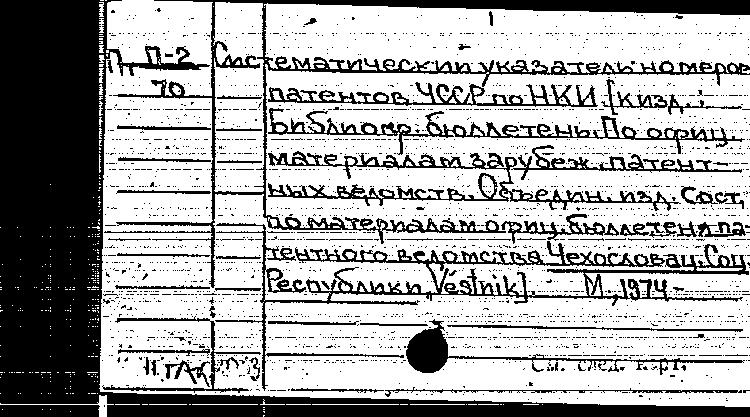 П, П-2 Систематический указатель номеров
70 патентов ЧССР по НКИ. [к изд.:
Библиогр. бюллетень. По офиц.
материалам зарубеж. патент-
ных ведомств. Объедин. изд. Сост.
по материалам офиц. бюллетеня па-
тентного ведомства Чехословац. Соц.
Республики „Vestnik]. М., 1974-
См. след. карт.